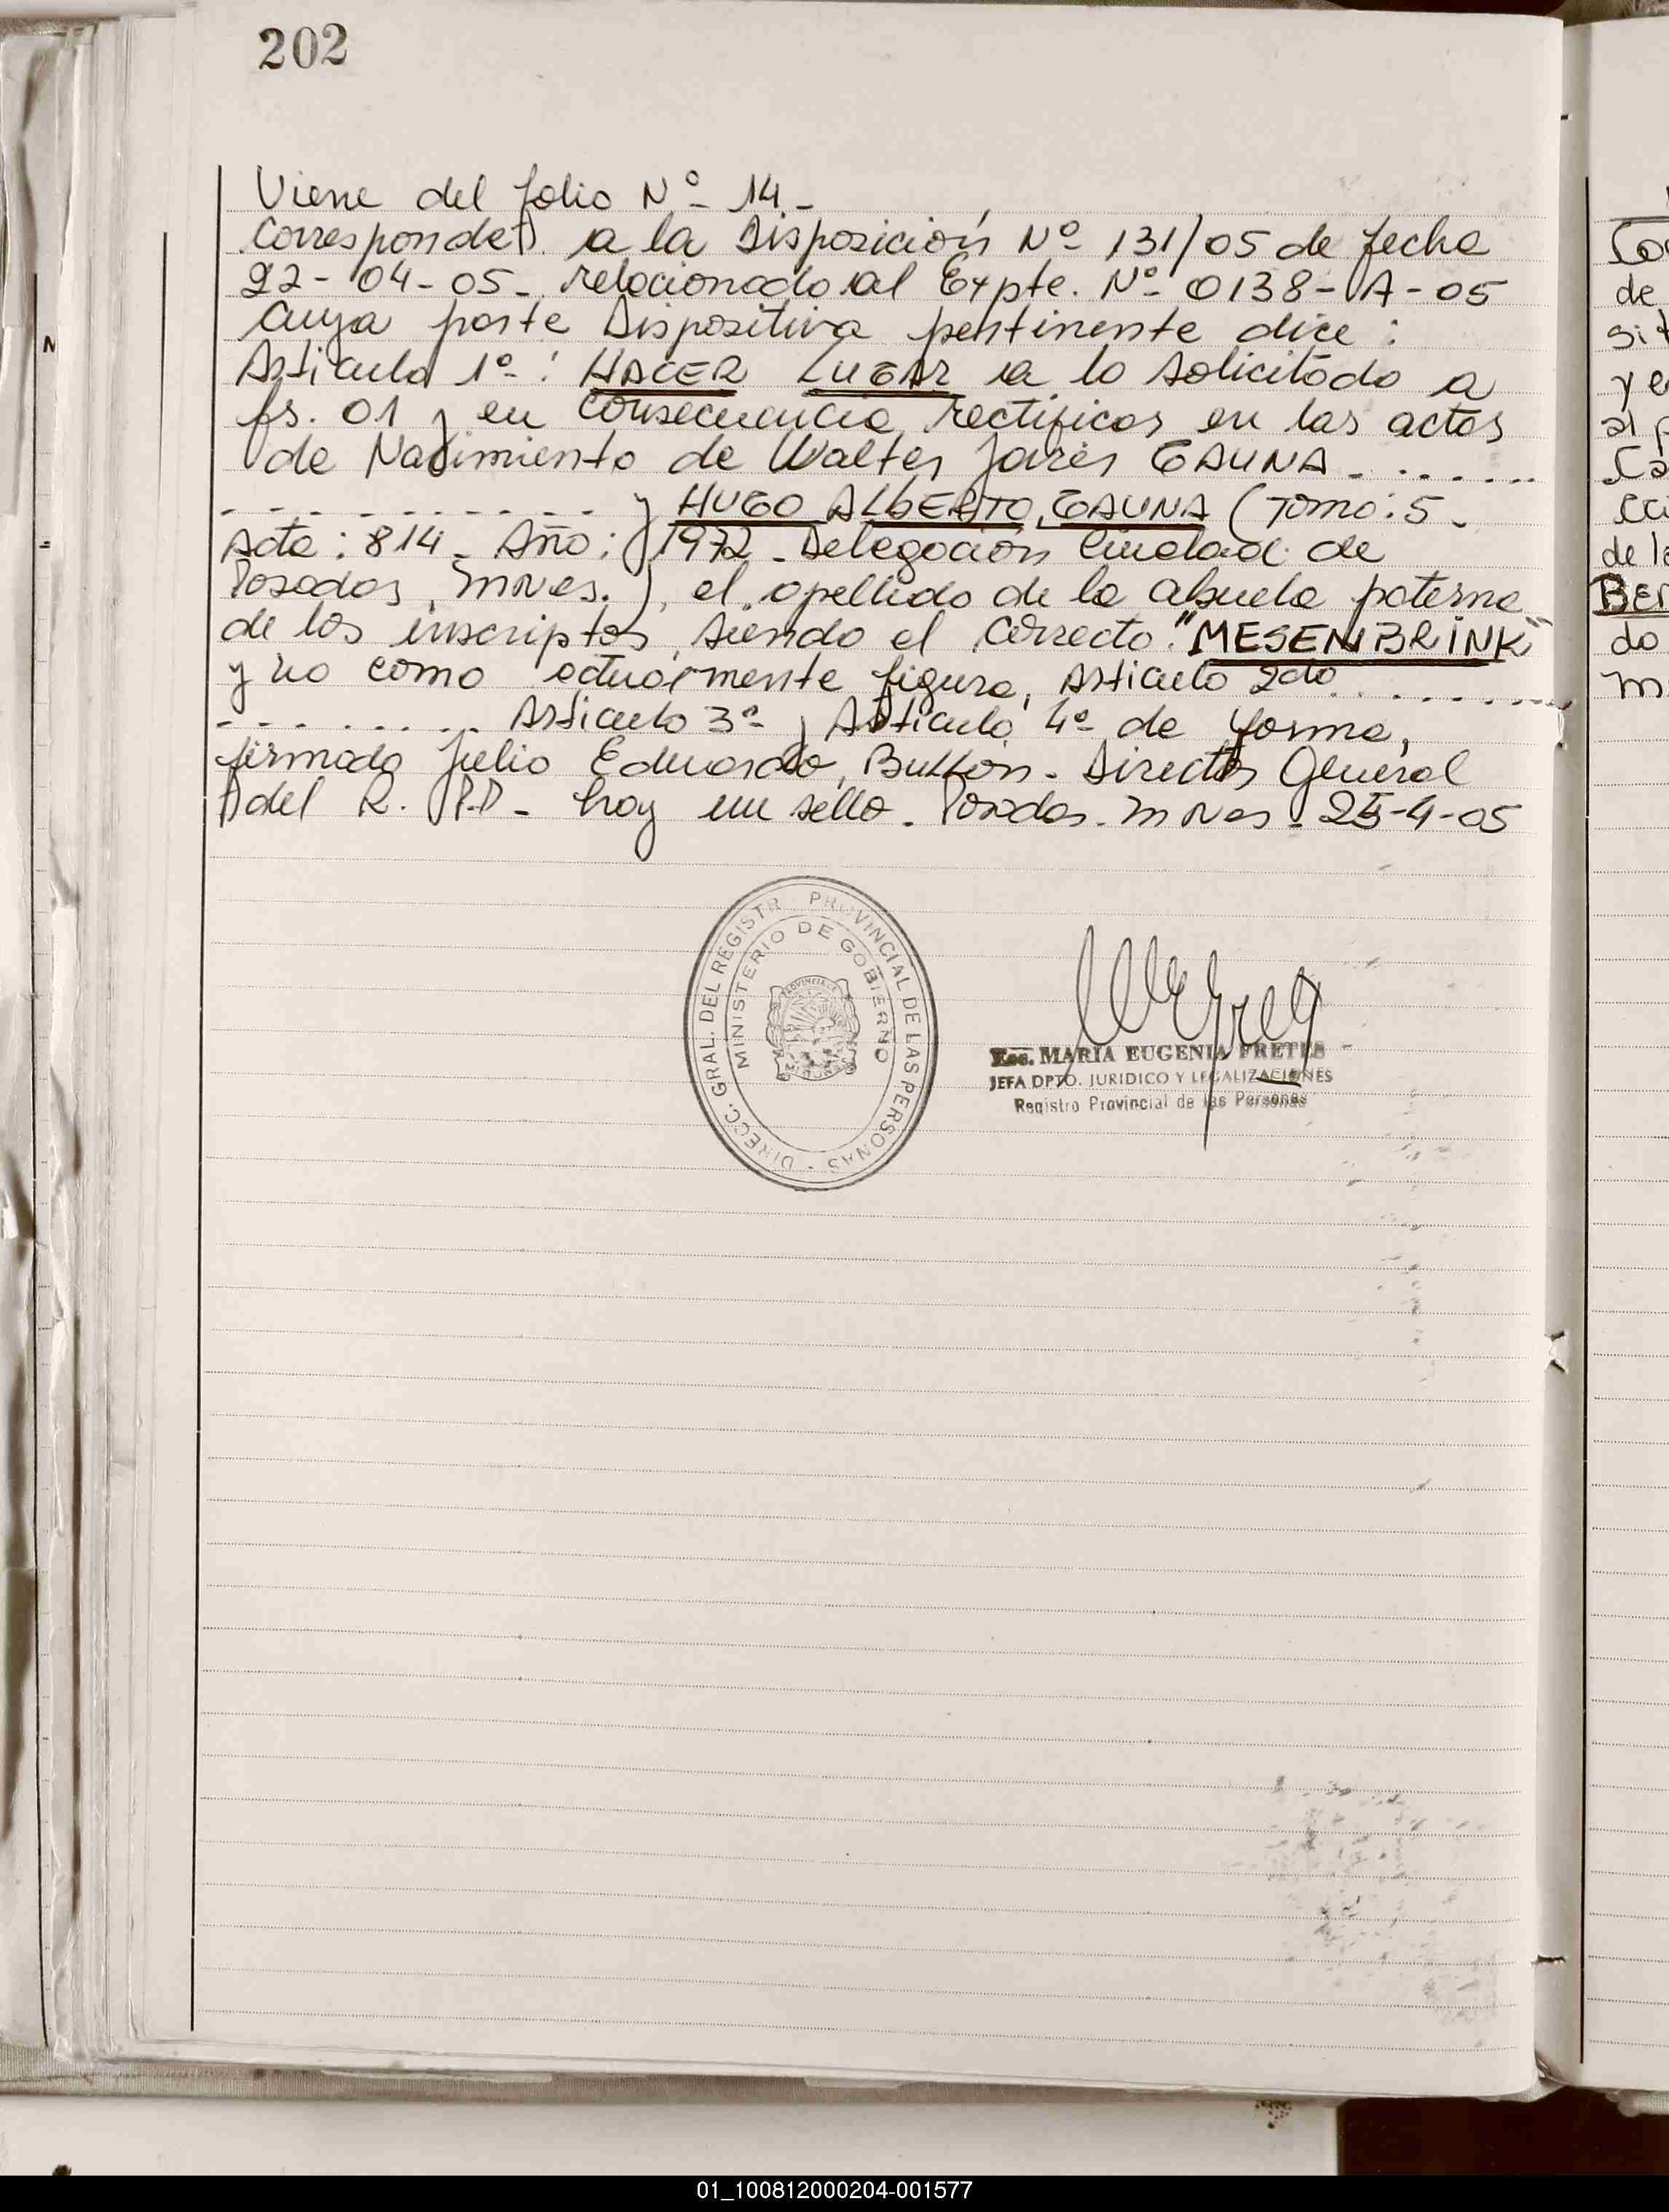 202
Viene del folio Nº 14 -
Corresponde a la Disposición Nº 131/05 de fecha
22-04-05 - relacionado al Expte. Nº 0138-A-05
cuya parte Dispositiva pertinente dice:
Articulo 1º: HACER LUGAR a lo solicitado a
fs. 01 y en consecuencia rectificar en las actas
de Nacimiento de Walter Javier GAUNA - . . . . . .
- - - - - - - - - - y HUGO ALbERTO GAUNA (Tomo: 5 -
Acta: 814 - Año: 1972 - Delegación Ciudad de
Posadas, Mnes.), el apellido de la abuela paterna
de los inscriptos, siendo el correcto "MESENBRINK"
y no como actualmente figura, Articulo 2do . . . . . . .
- - - - - - - - - Articulo 3º y Articulo 4º de forma,
firmado Julio Eduardo, Button - Director General
del R. P.P - hay un sello - Posadas - Mnes - 25-4-05
DIRECC. GRAL. DEL REGISTR PROVINCIAL DE LAS PERSONAS -
MINISTERIO DE GOBIERNO
Esc. MARIA EUGENIA FRETES
JEFA DPTO. JURIDICO Y LEGALIZACIONES
Registro Provincial de las Personas
N
=
de
sit
y e
al p
de la
BER
do
m
01_100812000204-001577